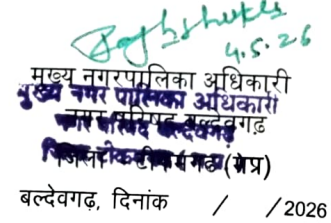 4.5.26
मुख्य नगरपालिका अधिकारी
मुख्य नगर पालिका अधिकारी
नगर परिषद बल्देवगढ़
नगर परिषद बल्देवगढ़
जिला टीकमगढ़ (मप्र)
बल्देवगढ़, दिनांक / /2026